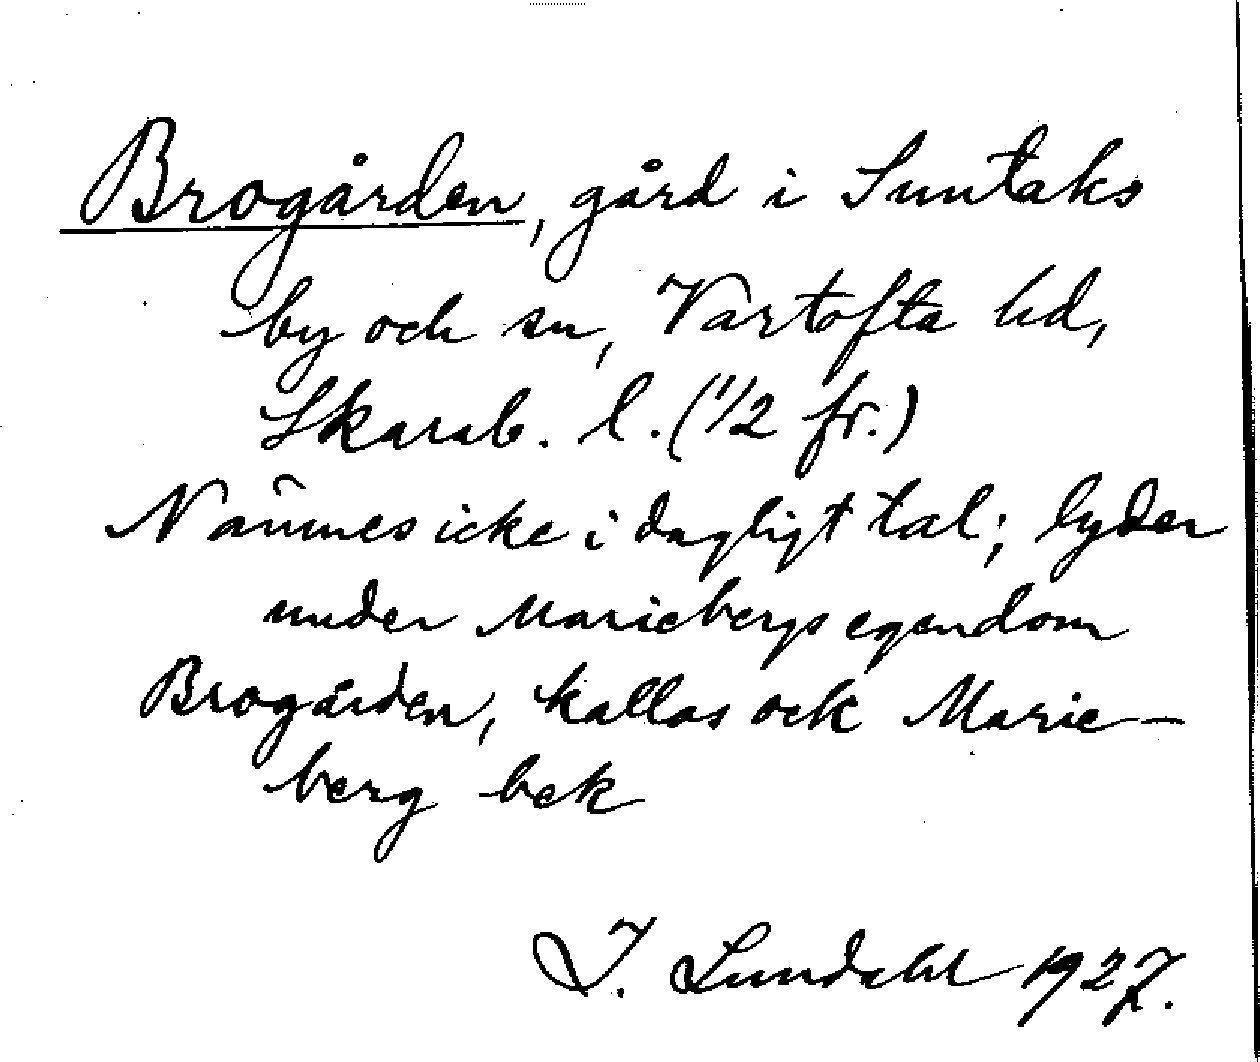 Brogården, gård i Suntaks
by och sn, Vartofta hd,
Skarab. l. (1/2 fr.)
Nämnes icke i dagligt tal; lyder
under Mariebergs egendom
Brogården, kallas ock Marie-
berg bek
I. Lundahl 1927.